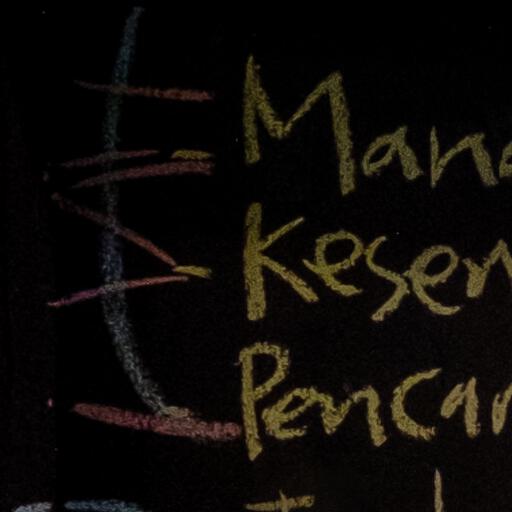 Mana
Kesen
Pencar